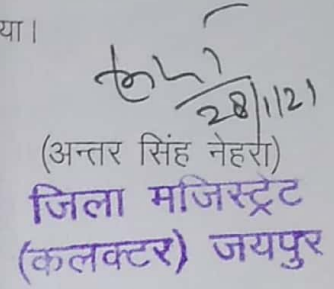 या।
28/1/21
(अन्तर सिंह नेहरा)
जिला मजिस्ट्रेट
(कलक्टर) जयपुर